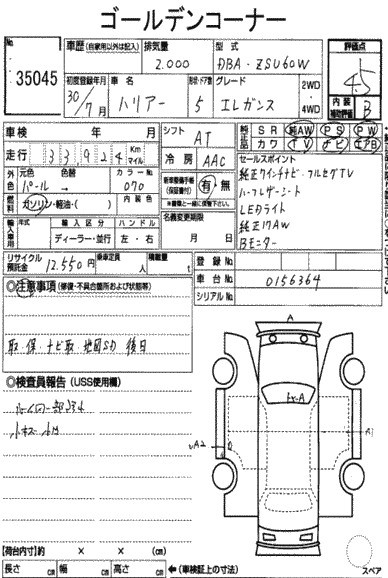 ゴールデンコーナー
No. 35045
車歴 (自家用以外は記入)
排気量 2.000
型式 DBA-ZSU60W
評価点 4.5
初度登録年月 30/7月
車名 ハリアー
形状・ドア数 5
グレード エレガンス
2WD・4WD
内装補助評価 B
車検 年 月
シフト AT
走行 33924 Km マイル
冷房 AAC
純正品 SR 純AW PS PW
カワ TV ナビ エアB
外色 元色 パール → 色替 カラーNo. 070
燃料 ガソリン・軽油・( ) 内装色
新車整備手帳(保証書付) 有・無
セールスポイント
純正9インチナビ・フルセグTV
ハーフレザーシート
LEDライト
純正17AW
Bモニター
輸入車用 年式 輸入区分 ハンドル
ディーラー・並行 左・右
名義変更期限 月 日
リサイクル預託金 12.550円
乗車定員 人
積載量 t
登録No.
車台No. 0156364
シリアルNo.
◎注意事項 (修復・不具合箇所および状態等)
取・保・ナビ取・地図SD 後日
◎検査員報告 (USS使用欄)
A
EXA
A2
A1
【荷台内寸】約 × × (cm)
長さ cm 幅 cm 高さ cm
←(車検証上の寸法)
スペア